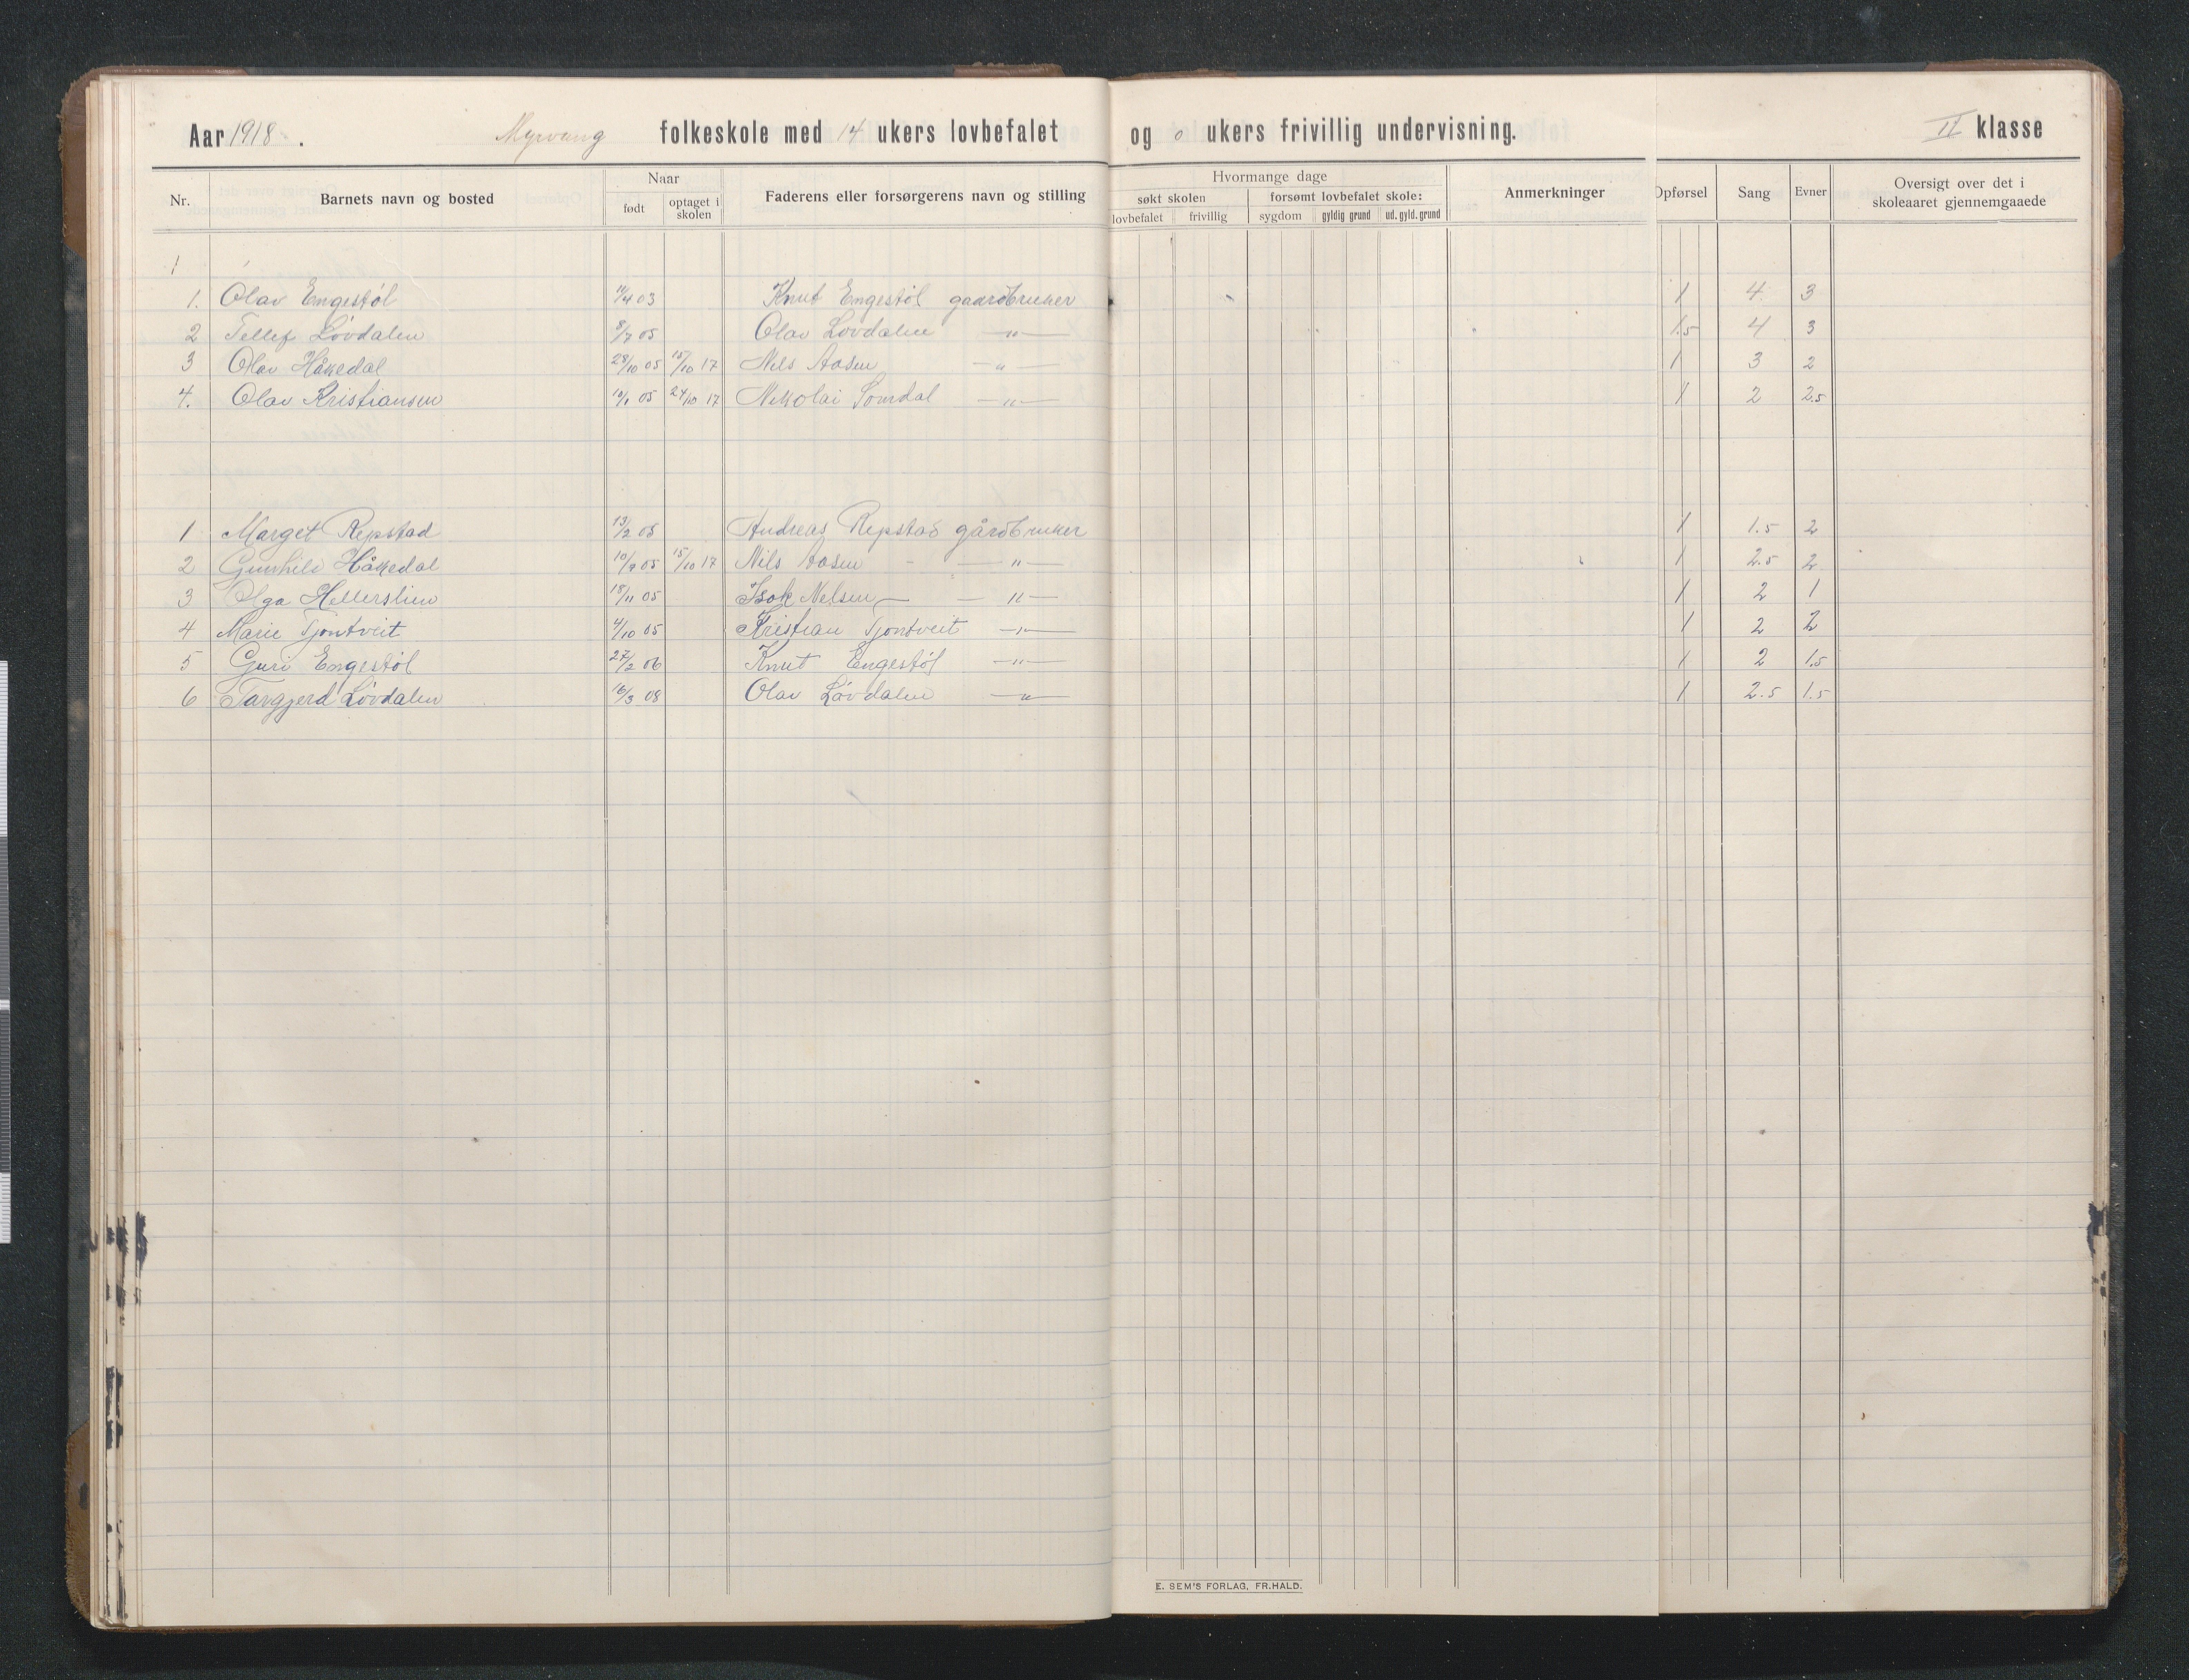 Aar 1918. Myrvang folkeskole med 14 ukers lovbefalet og 0 ukers frivillig undervisning. II klasse
Nr. Barnets navn og bosted Naar født optaget i skolen Faderens eller forsørgerens navn og stilling Hvormange dage søkt skolen lovbefalet frivillig forsømt lovbefalet skole: sygdom gyldig grund ud. gyld. grund Anmerkninger Opførsel Sang Evner Oversigt over det i skoleaaret gjennemgaaede
1
1. Olav Engestøl 11/4 03 Knut Engestøl gaardbruker 1 4 3
2 Tellef Løvdalen 8/7 05 Olav Løvdalen —"— 1.5 4 3
3 Olav Håkedal 28/10 05 15/10 17 Nils Aasen —"— 1 3 2
4. Olav Kristiansen 10/1 05 24/10 17 Nikolai Somdal —"— 1 2 2.5
1 Marget Repstad 13/2 05 Andreas Repstad gårdbruker 1 1.5 2
2 Gunhild Håkedal 10/9 05 15/10 17 Nils Aasen —"— 1 2.5 2
3 Olga Hellerslien 18/11 05 Isak Nelsen —"— 1 2 1
4 Marie Tjontveit 4/10 05 Kristian Tjontveit —"— 1 2 2
5 Guri Engestøl 27/2 06 Knut Engestøl —"— 1 2 1.5
6 Targjerd Løvdalen 16/3 08 Olav Løvdalen —"— 1 2.5 1.5
E. SEM'S FORLAG, FR.HALD.